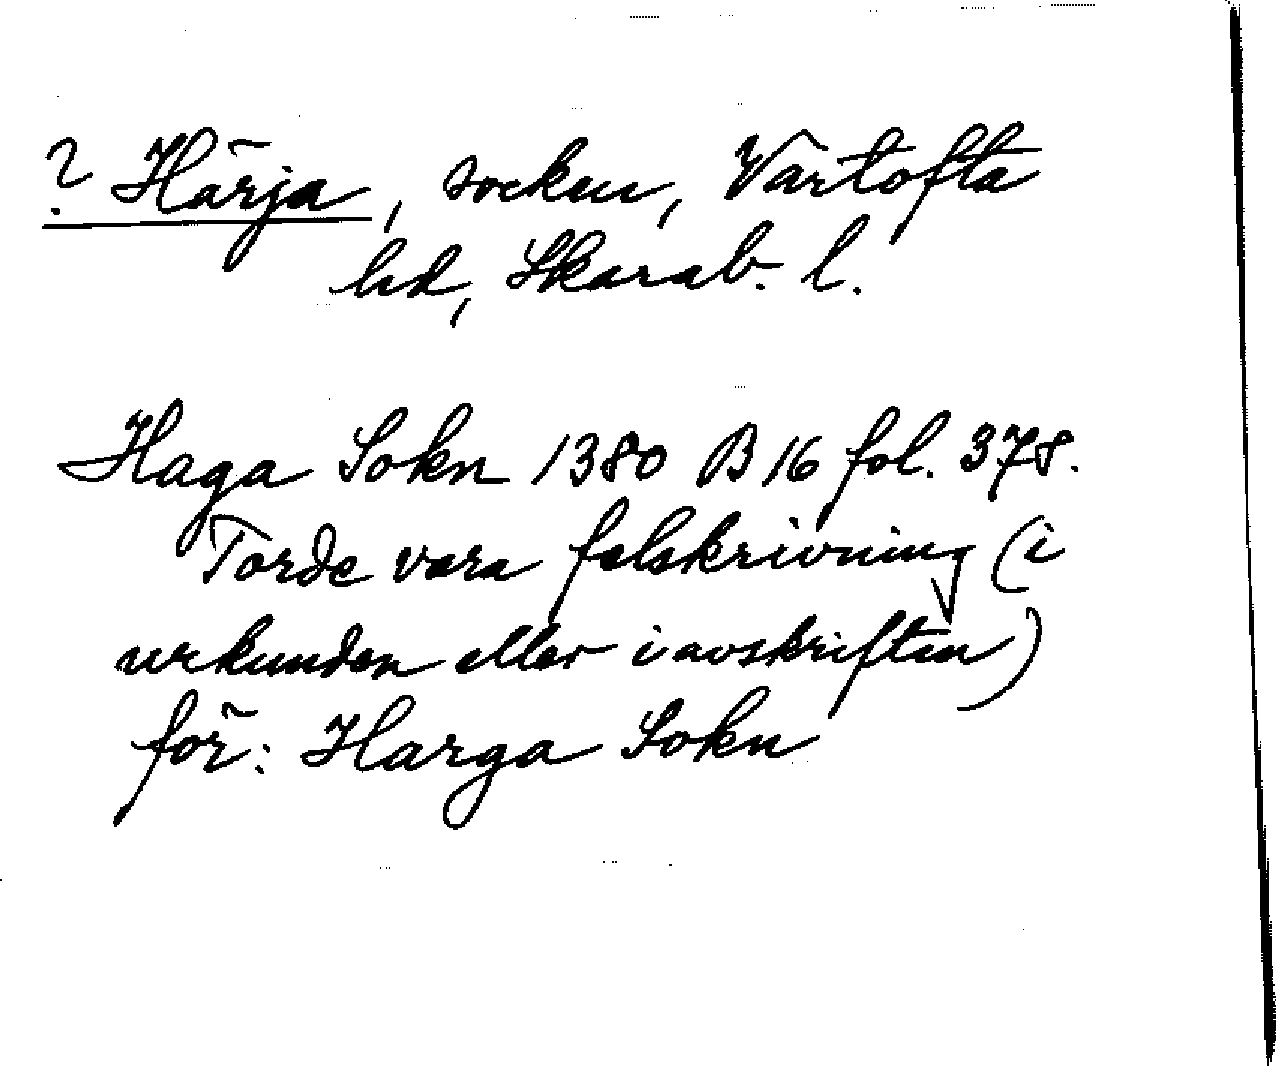 ? Härja, socken, Vartofta
hd, Skarab. l.
Haga Sokn 1380 B 16 fol. 378.
Torde vara felskrivning (i
urkunden eller i avskriften)
för: Harga Sokn